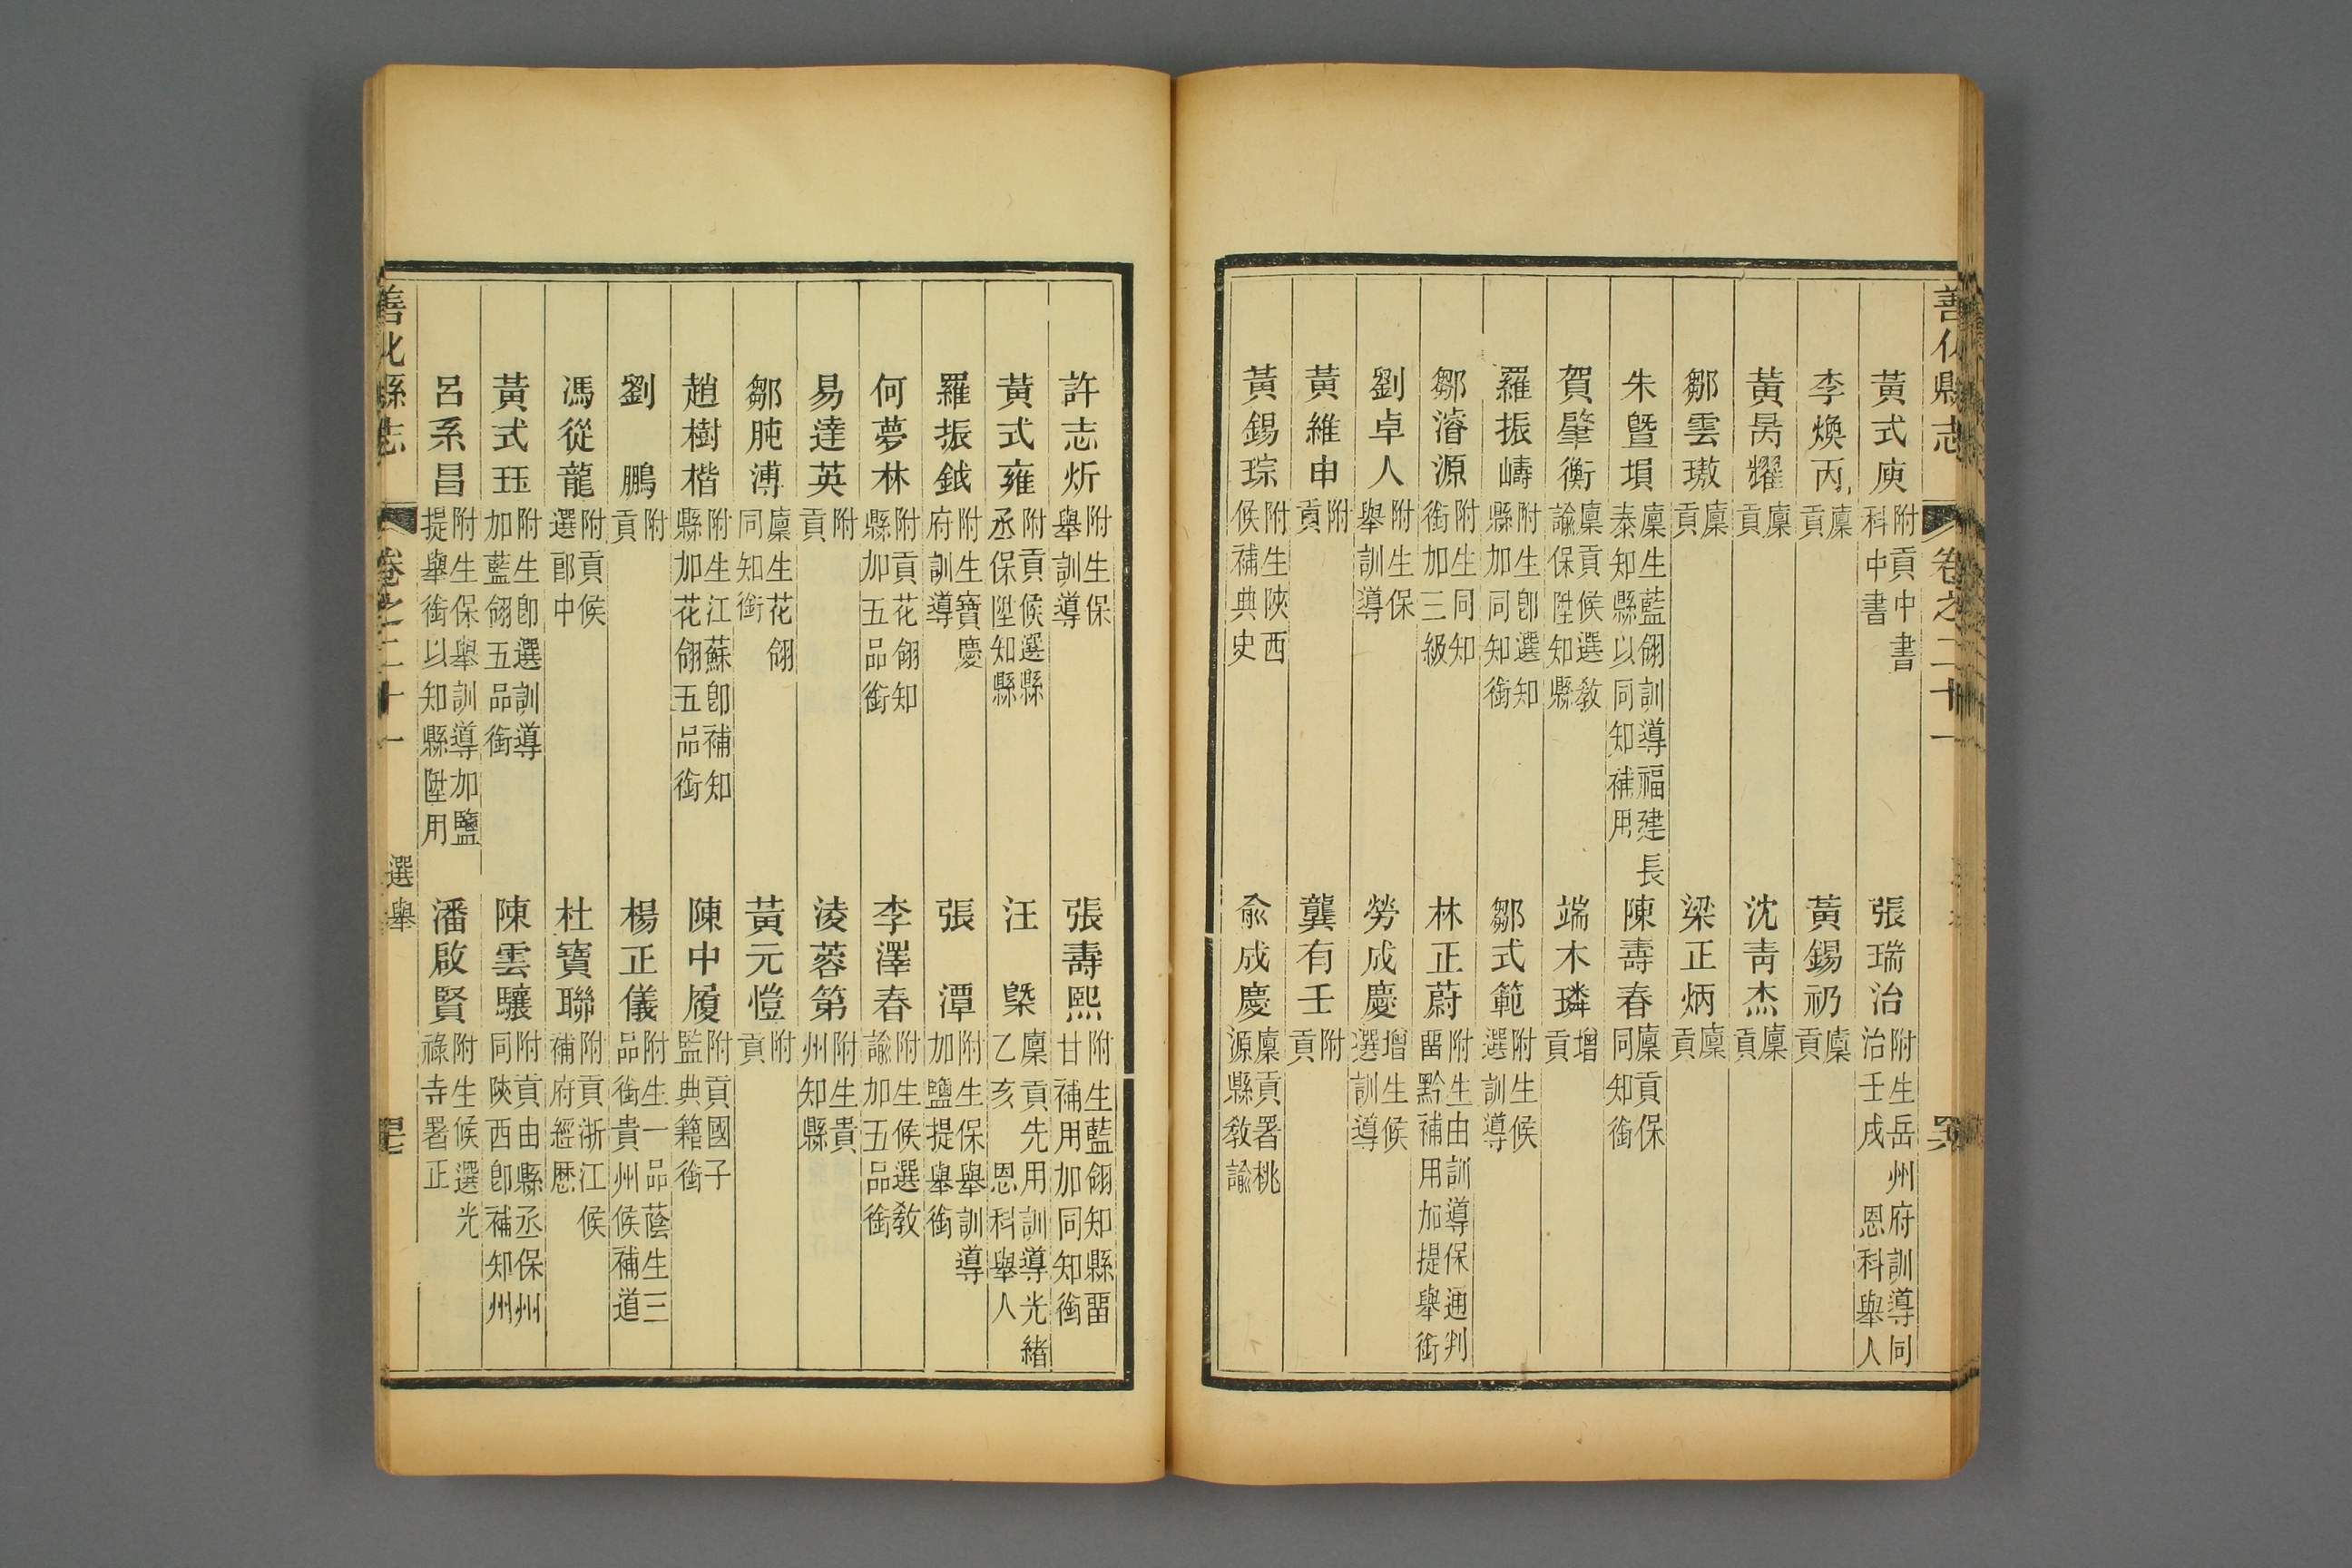 善化縣志 卷之二十一
黃式庾 附貢中書科中書 張瑞治 附生岳州府訓導同治壬戌 恩科舉人
李煥丙 廩貢 黃錫礽 廩貢
黃昺耀 廩貢 沈靑杰 廩貢
鄒雲璈 廩貢 梁正炳 廩貢
朱曁塤 廩生藍翎訓導福建長泰知縣以同知補用 陳壽春 廩貢保同知銜
賀肇衡 廩貢候選敎諭保陞知縣 端木璘 增貢
羅振嶹 附生卽選知縣加同知銜 鄒式範 附生候選訓導
鄒濬源 附生同知銜加三級 林正蔚 附生由訓導保通判畱黔補用加提舉銜
劉卓人 附生保舉訓導 勞成慶 增生候選訓導
黃維申 附貢 龔有壬 附貢
黃錫琮 附生陝西候補典史 兪成慶 廩貢署桃源縣敎諭
許志炘 附生保舉訓導 張壽熙 附生藍翎知縣畱甘補用加同知銜
黃式雍 附貢候選縣丞保陞知縣 汪㮣 廩貢先用訓導光緒乙亥 恩科舉人
羅振鉞 附生寶慶府訓導 張潭 附生保舉訓導加鹽提舉銜
何夢林 附貢花翎知縣加五品銜 李澤春 附生候選敎諭加五品銜
易達英 附貢 淩蓉第 附生貴州知縣
鄒肫溥 廩生花翎同知銜 黃元愷 附貢
趙樹楷 附生江蘇卽補知縣加花翎五品銜 陳中履 附貢國子監典籍銜
劉鵬 附貢 楊正儀 附生一品蔭生三品銜貴州候補道
馮從龍 附貢候選郎中 杜寶聯 附貢浙江候補府經歷
黃式珏 附生卽選訓導加藍翎五品銜 陳雲驤 附貢由縣丞保州同陝西卽補知州
呂系昌 附生保舉訓導加鹽提舉銜以知縣陞用 潘啟賢 附生候選光祿寺署正
善化縣志 卷之二十一 選舉